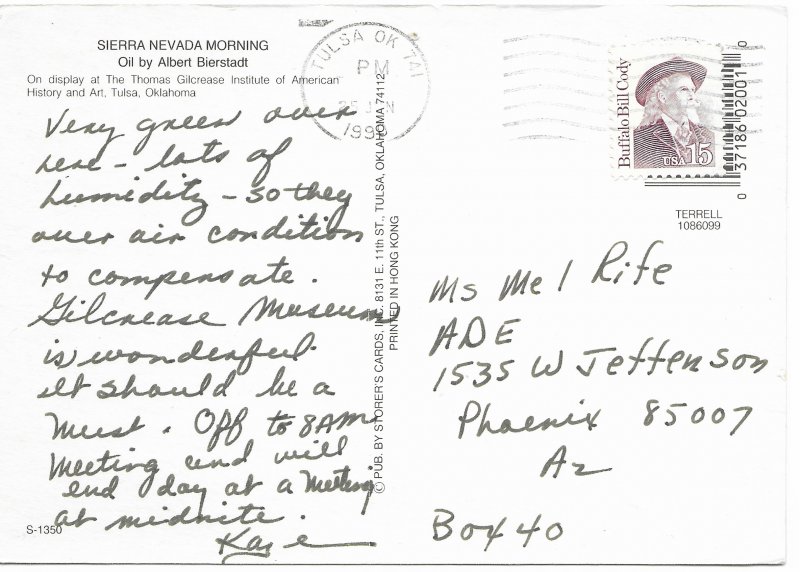 SIERRA NEVADA MORNING
Oil by Albert Bierstadt
On display at The Thomas Gilcrease Institute of American
History and Art, Tulsa, Oklahoma
Very green over
here - lots of
humidity - so they
over air condition
to compensate.
Gilcrease Museum
is wonderful.
It should be a
must. Off to 8AM
meeting and will
end day at a meeting
at midnite.
Kaye
S-1350
© PUB. BY STORER'S CARDS, INC. 8131 E. 11th ST., TULSA, OKLAHOMA 74112
PRINTED IN HONG KONG
TULSA OK 741
PM
25
199
Buffalo Bill Cody
USA 15
0 37186 02001 0
TERRELL
1086099
Ms Mel Rife
ADE
1535 W Jefferson
Phoenix 85007
Az
Box 40